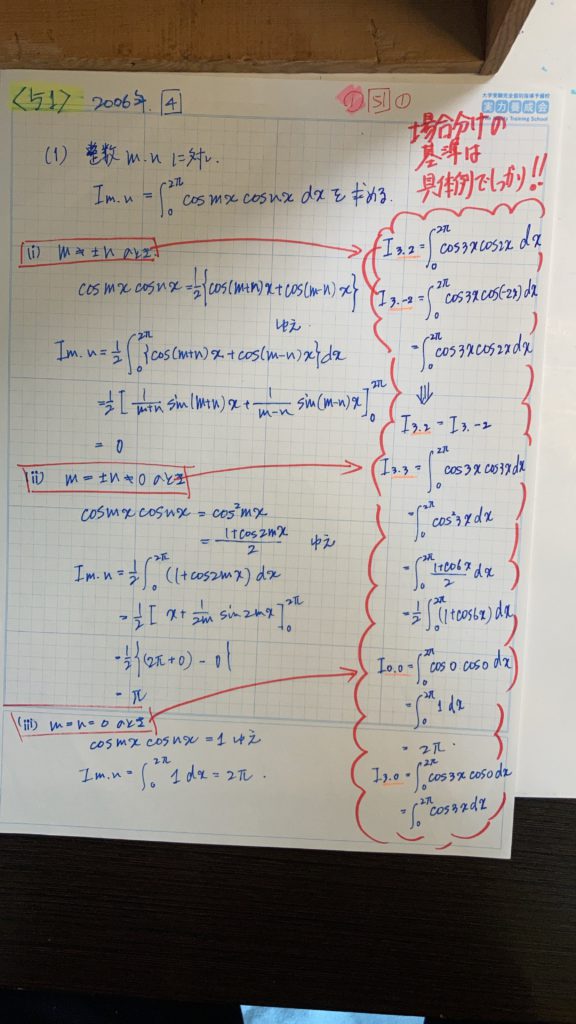 <51> 2006年. 4
① 51 ①
大学受験完全個別指導予備校
実力養成会
Training School
場合分けの
基準は
具体例でしっかり!!
(1) 整数 m.n に対し
Im.n = ∫₀^2π cosmx cosnx dx を求める.
(i) m ≠ ±n のとき
cosmx cosnx = 1/2{cos(m+n)x + cos(m-n)x}
ゆえ
Im.n = 1/2 ∫₀^2π {cos(m+n)x + cos(m-n)x}dx
= 1/2 [ 1/(m+n) sin(m+n)x + 1/(m-n) sin(m-n)x ]₀^2π
= 0
(ii) m = ±n ≠ 0 のとき
cosmx cosnx = cos²mx
= (1+cos2mx)/2 ゆえ
Im.n = 1/2 ∫₀^2π (1+cos2mx) dx
= 1/2 [ x + 1/2m sin2mx ]₀^2π
= 1/2 {(2π+0) - 0}
= π
(iii) m = n = 0 のとき
cosmx cosnx = 1 ゆえ
Im.n = ∫₀^2π 1 dx = 2π.
I3.2 = ∫₀^2π cos3x cos2x dx
I3.-2 = ∫₀^2π cos3x cos(-2x) dx
= ∫₀^2π cos3x cos2x dx
⇓
I3.2 = I3.-2
I3.3 = ∫₀^2π cos3x cos3x dx
= ∫₀^2π cos²3x dx
= ∫₀^2π (1+cos6x)/2 dx
= 1/2 ∫₀^2π (1+cos6x) dx
I0.0 = ∫₀^2π cos0 cos0 dx
= ∫₀^2π 1 dx
= 2π.
I3.0 = ∫₀^2π cos3x cos0 dx
= ∫₀^2π cos3x dx